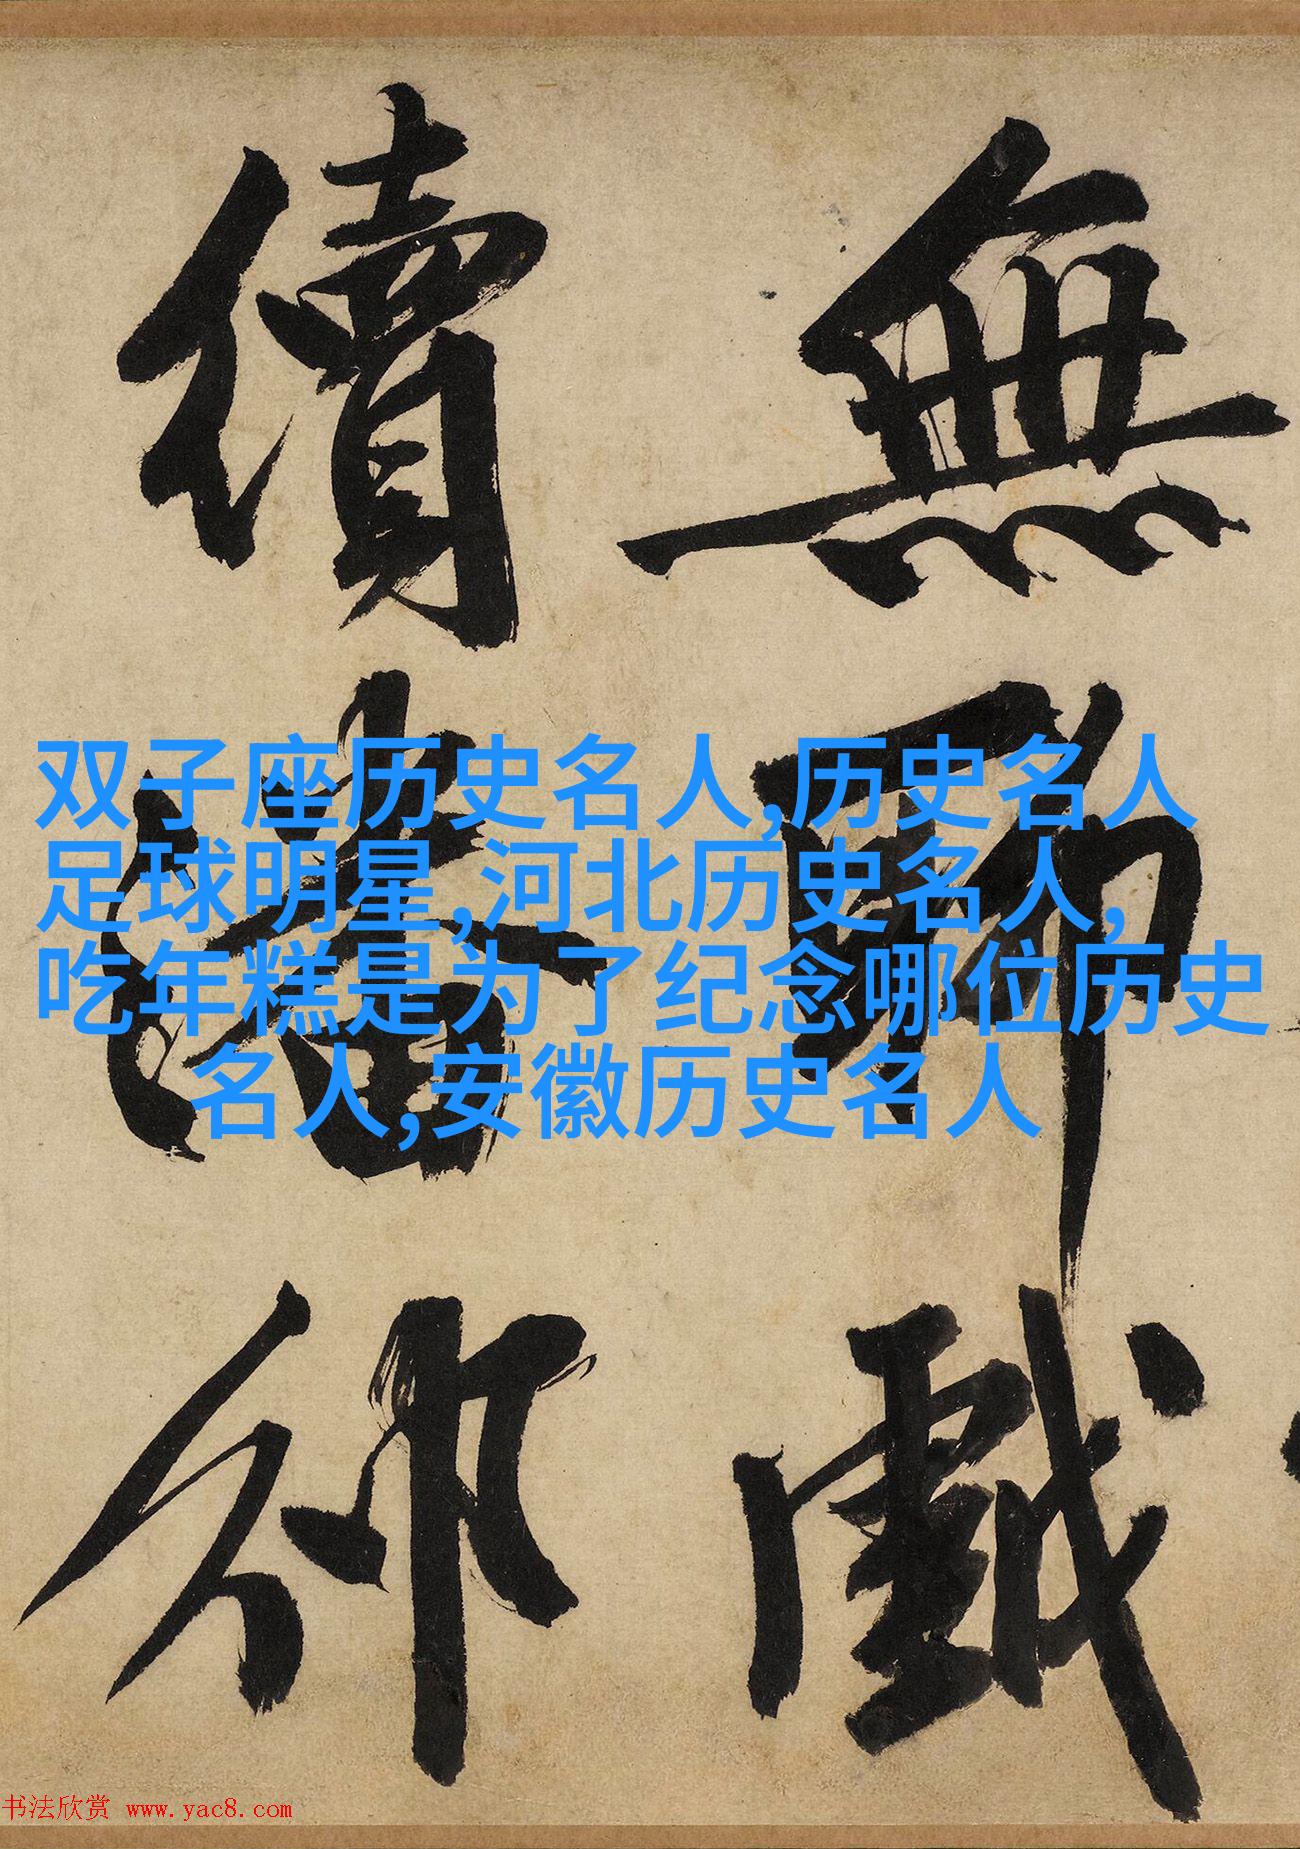 無聊戲
續書卻
双子座历史名人,历史名人
足球明星,河北历史名人,
吃年糕是为了纪念哪位历史
名人,安徽历史名人
书法欣赏 www.yac8.com